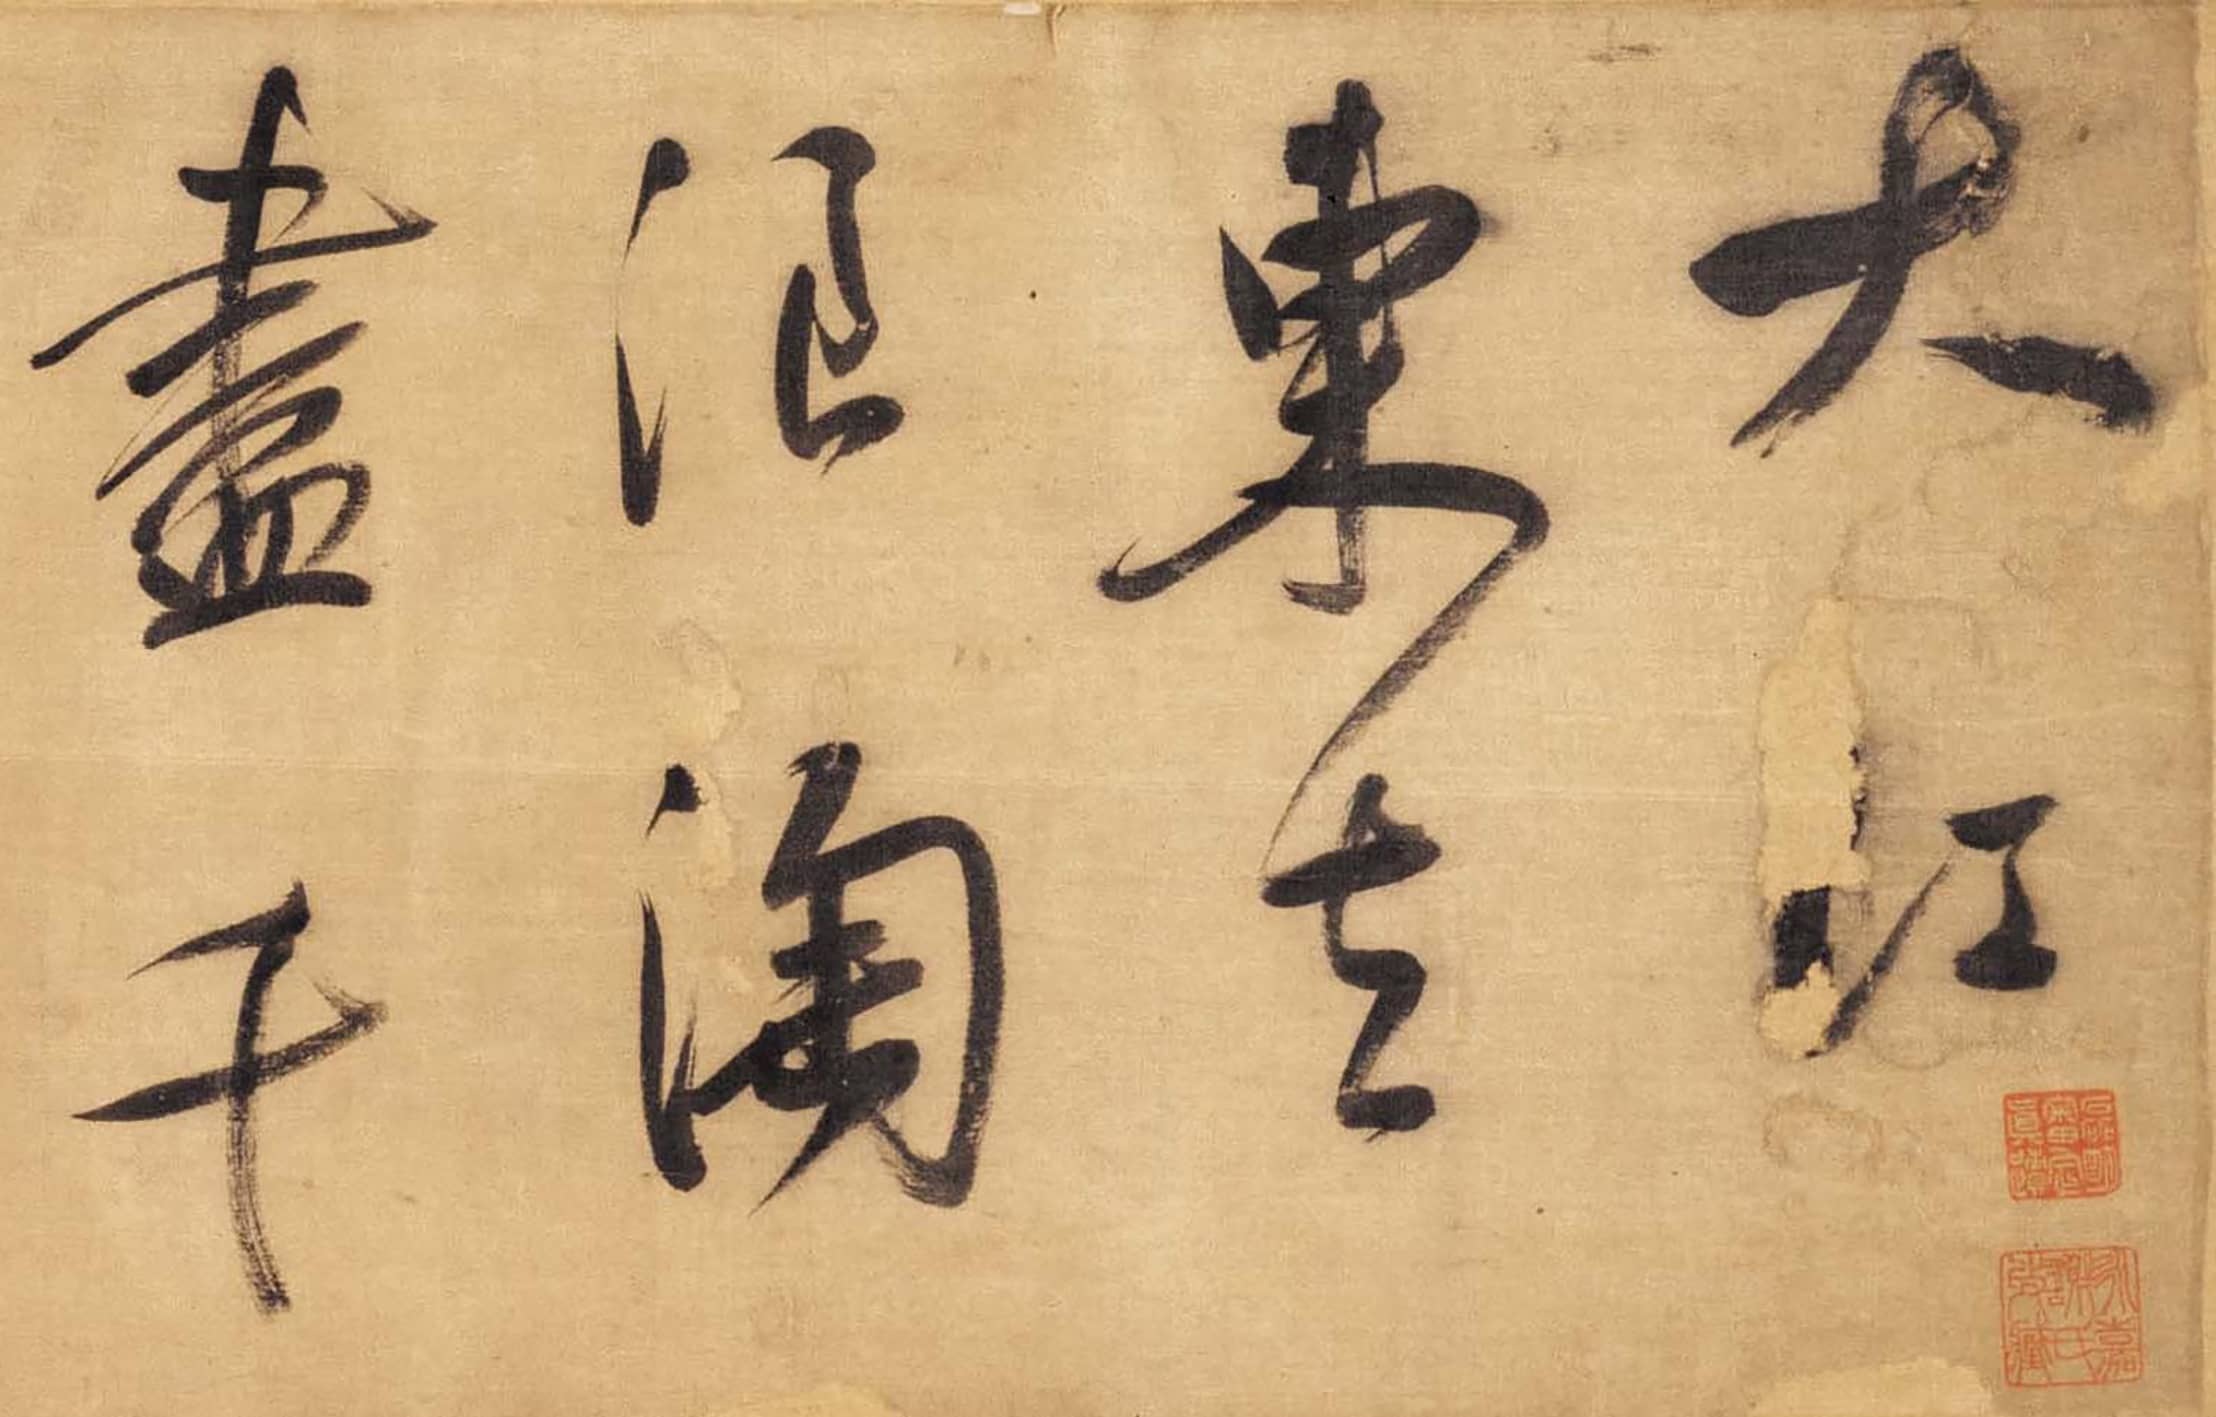 大江
東去
浪淘
盡千